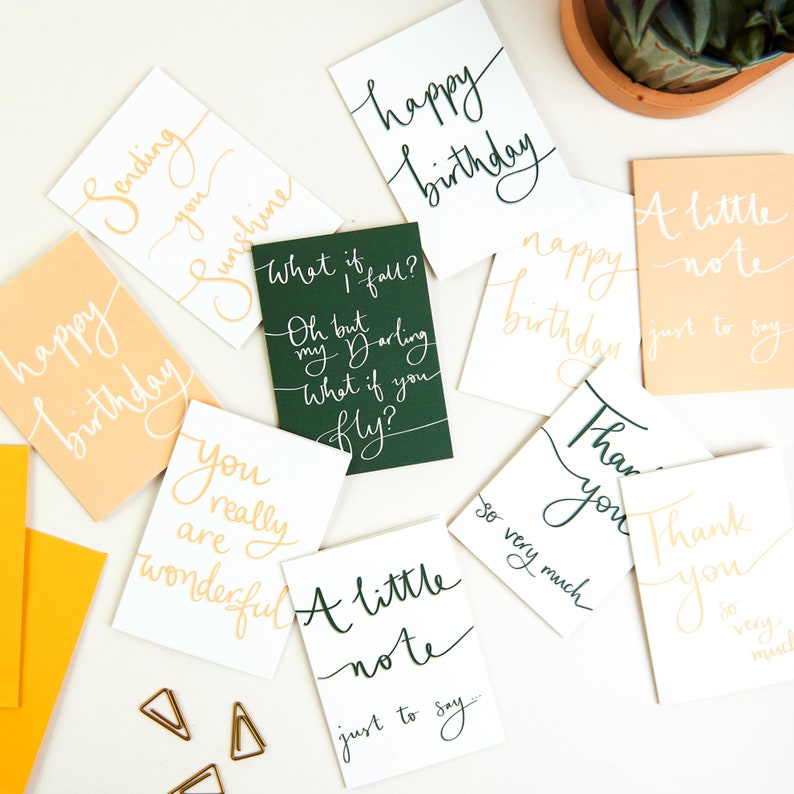 happy
birthday
Sending
you
Sunshine
A little
note
just to say
What if
I fall?
Oh but
my Darling
What if you
fly?
happy
birthday
happy
birthday
you
really
are
wonderful
Thank
you
so very much
Thank
you
so
very
much
A little
note
just to say...